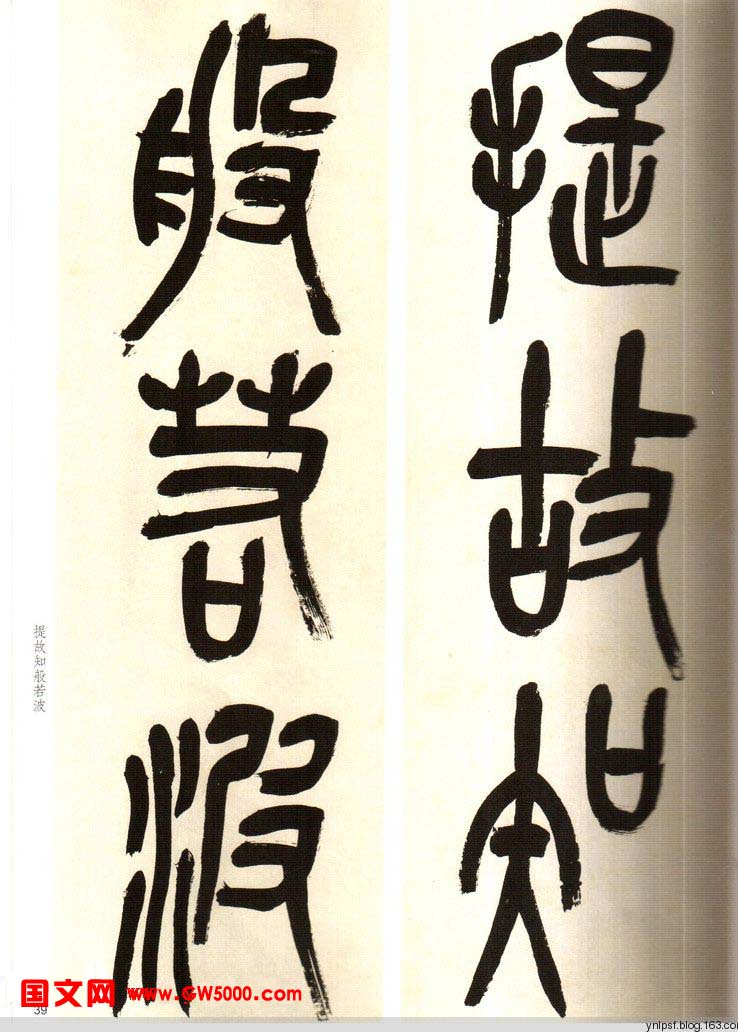 提故知
般若波
提故知般若波
39
国文网 www.GW5000.com
ynlpsf.blog.163.co